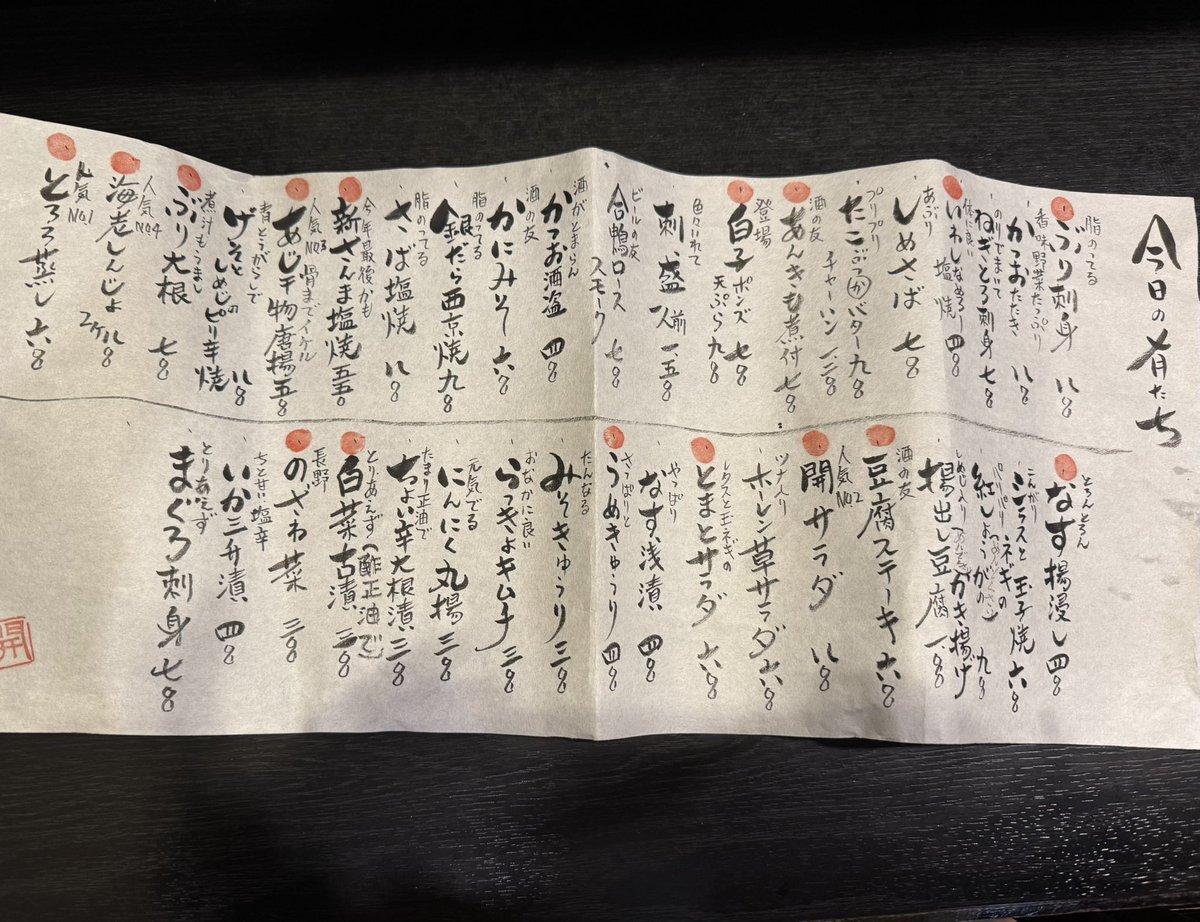 今日の肴たち
脂のってる
ぶり刺身 八〇〇
香味野菜たっぷり
かつおたたき 八〇〇
のりでまいて
ねぎとろ刺身 七〇〇
体に良い
いわしなめろう 塩焼 四〇〇
あぶり
しめさば 七〇〇
プリプリ
たこぶつ か バター 九〇〇
チャーハン 一二〇〇
酒の友
あんきも煮付 七〇〇
登場
白子 ポンズ 七〇〇
天ぷら 九〇〇
色々いれて
刺盛 一人前 一五〇〇
ビールの友
合鴨ロース
スモーク 七〇〇
酒がとまらん
かつお酒盗 四〇〇
酒の友
かにみそ 六〇〇
脂のってる
銀だら西京焼 九〇〇
脂のってる
さば塩焼 八〇〇
今年最後かも
新さんま塩焼 五五〇
人気No3 骨までイケル
あじ干物唐揚 五〇〇
青とうがらしで
げそとしめじのピリ辛焼 八〇〇
煮汁もうまい
ぶり大根 七〇〇
人気No4
海老しんじょ 二ケ 八〇〇
人気No1
とろろ蒸し 六〇〇
とろんとろん
なす揚浸し 四〇〇
こんがり
シラスとネギの玉子焼 六〇〇
パリパリ
紅しょうがのかき揚げ 九〇〇
しめじ入り
揚出し豆腐 一〇〇〇
酒の友
豆腐ステーキ 六〇〇
人気No2
開サラダ 八〇〇
ツナ入り
ホーレン草サラダ 六〇〇
レタスと玉ネギの
とまとサラダ 六〇〇
やっぱり
なす浅漬 四〇〇
さっぱりと
うめきゅうり 四〇〇
たんなる
みそきゅうり 三〇〇
おなかに良い
らっきょキムチ 三〇〇
元気でる
にんにく丸揚 三〇〇
たまり正油で
ちょい辛大根漬 三〇〇
とりあえず(酢正油で)
白菜古漬 三〇〇
長野
のざわ菜 三〇〇
ちと甘い塩辛
いか三升漬 四〇〇
とりあえず
まぐろ刺身 七〇〇
開